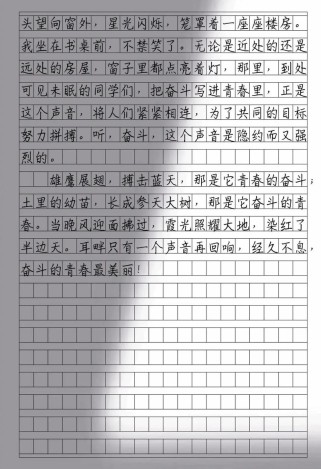 头望向窗外，星光闪烁，笼罩着一座座楼房。
我坐在书桌前，不禁笑了。无论是近处的还是
远处的房屋，窗子里都点亮着灯，那里，到处
可见未眠的同学们，把奋斗写进青春里，正是
这个声音，将人们紧紧相连，为了共同的目标
努力拼搏。听，奋斗，这个声音是隐约而又强
烈的。
雄鹰展翅，搏击蓝天，那是它青春的奋斗；
土里的幼苗，长成参天大树，那是它奋斗的青
春。当晚风迎面拂过，霞光照耀大地，染红了
半边天。耳畔只有一个声音再回响，经久不息，
奋斗的青春最美丽！